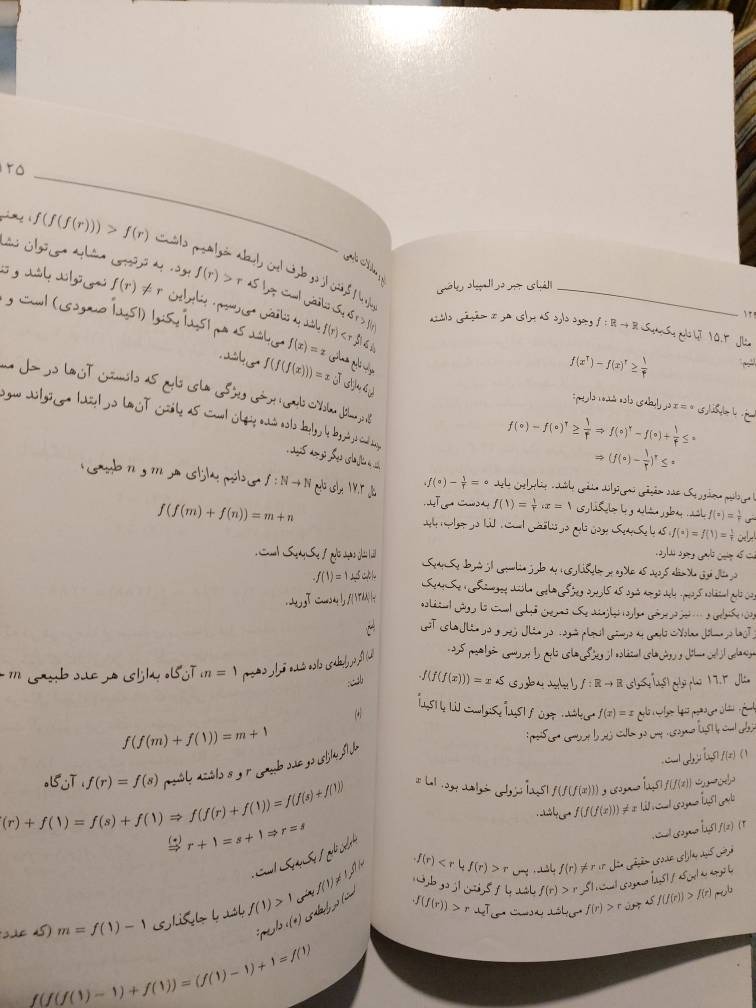 الفبای جبر در المپیاد ریاضی
مثال ۱۵.۳ آیا تابع یک‌به‌یک f : ℝ → ℝ وجود دارد که برای هر x حقیقی داشته
باشیم:
f(x²) − f(x)² ≥ ۱/۴
پاسخ. با جایگذاری x = ۰ در رابطه‌ی داده شده، داریم:
f(۰) − f(۰)² ≥ ۱/۴ ⇒ f(۰)² − f(۰) + ۱/۴ ≤ ۰
⇒ (f(۰) − ۱/۲)² ≤ ۰
می‌دانیم مجذور یک عدد حقیقی نمی‌تواند منفی باشد. بنابراین باید f(۰) − ۱/۲ = ۰،
f(۰) = ۱/۲ باشد. به‌طور مشابه و با جایگذاری x = ۱، f(۱) = ۱/۲ به‌دست می‌آید.
بنابراین f(۰) = f(۱) = ۱/۲، که با یک‌به‌یک بودن تابع در تناقض است. لذا در جواب، باید
گفت که چنین تابعی وجود ندارد.
در مثال فوق ملاحظه کردید که علاوه بر جایگذاری، به طرز مناسبی از شرط یک‌به‌یک
بودن تابع استفاده کردیم. باید توجه شود که کاربرد ویژگی‌هایی مانند پیوستگی، یک‌به‌یک
بودن، یکنوایی و ... نیز در برخی موارد، نیازمند یک تمرین قبلی است تا روش استفاده
از آن‌ها در مسائل معادلات تابعی به درستی انجام شود. در مثال زیر و در مثال‌های آتی
نمونه‌هایی از این مسائل و روش‌های استفاده از ویژگی‌های تابع را بررسی خواهیم کرد.
مثال ۱۶.۳ تمام توابع اکیداً یکنوای f : ℝ → ℝ را بیابید به‌طوری که f(f(f(x))) = x.
پاسخ. نشان می‌دهیم تنها جواب، تابع f(x) = x می‌باشد. چون f اکیداً یکنواست لذا یا اکیداً
نزولی است یا اکیداً صعودی. پس دو حالت زیر را بررسی می‌کنیم:
۱) f(x) اکیداً نزولی است.
در این‌صورت f(f(x)) اکیداً صعودی و f(f(f(x))) اکیداً نزولی خواهد بود. اما x
تابعی اکیداً صعودی است، لذا f(f(f(x))) ≠ x می‌باشد.
۲) f(x) اکیداً صعودی است.
فرض کنید به‌ازای عددی حقیقی مثل r، f(r) ≠ r باشد. پس f(r) > r یا f(r) < r.
با توجه به این‌که f اکیداً صعودی است، اگر f(r) > r باشد با f گرفتن از دو طرف،
داریم f(f(r)) > f(r) که چون f(r) > r می‌باشد به‌دست می‌آید f(f(r)) > r.
معادلات تابعی ۱۲۵
دوباره با f گرفتن از دو طرف این رابطه خواهیم داشت f(f(f(r))) > f(r)، یعنی
r > f(r) که یک تناقض است چرا که f(r) > r بود. به ترتیبی مشابه می‌توان
داد که اگر f(r) < r باشد به تناقض می‌رسیم. بنابراین f(r) ≠ r نمی‌تواند باشد و
جواب تابع همانی f(x) = x می‌باشد که هم اکیداً یکنوا (اکیداً صعودی) است و
این‌که به‌ازای آن f(f(f(x))) = x می‌باشد.
گاه در مسائل معادلات تابعی، برخی ویژگی های تابع که دانستن آن‌ها در حل
سودمند است در شروط یا روابط داده شده پنهان است که یافتن آن‌ها در ابتدا می‌تواند
باشد. به مثال‌های دیگر توجه کنید.
مثال ۱۷.۳ برای تابع f : ℕ → ℕ می‌دانیم به‌ازای هر m و n طبیعی،
f(f(m) + f(n)) = m + n
الف) نشان دهید تابع f یک‌به‌یک است.
ب) ثابت کنید f(۱) = ۱.
f(۱۳۸۸) را به‌دست آورید.
پاسخ.
الف) اگر در رابطه‌ی داده شده قرار دهیم n = ۱، آن‌گاه به‌ازای هر عدد طبیعی m
داشت:
(*)
f(f(m) + f(۱)) = m + ۱
حال اگر به‌ازای دو عدد طبیعی r و s داشته باشیم f(r) = f(s)، آن‌گاه
f(r) + f(۱) = f(s) + f(۱) ⇒ f(f(r) + f(۱)) = f(f(s) + f(۱))
(*)⇒ r + ۱ = s + ۱ ⇒ r = s
بنابراین تابع f یک‌به‌یک است.
ب) اگر f(۱) ≠ ۱ یعنی f(۱) > ۱ باشد با جایگذاری m = f(۱) − ۱ (که
است) در رابطه‌ی (*)، داریم:
f(f(f(۱) − ۱) + f(۱)) = (f(۱) − ۱) + ۱ = f(۱)